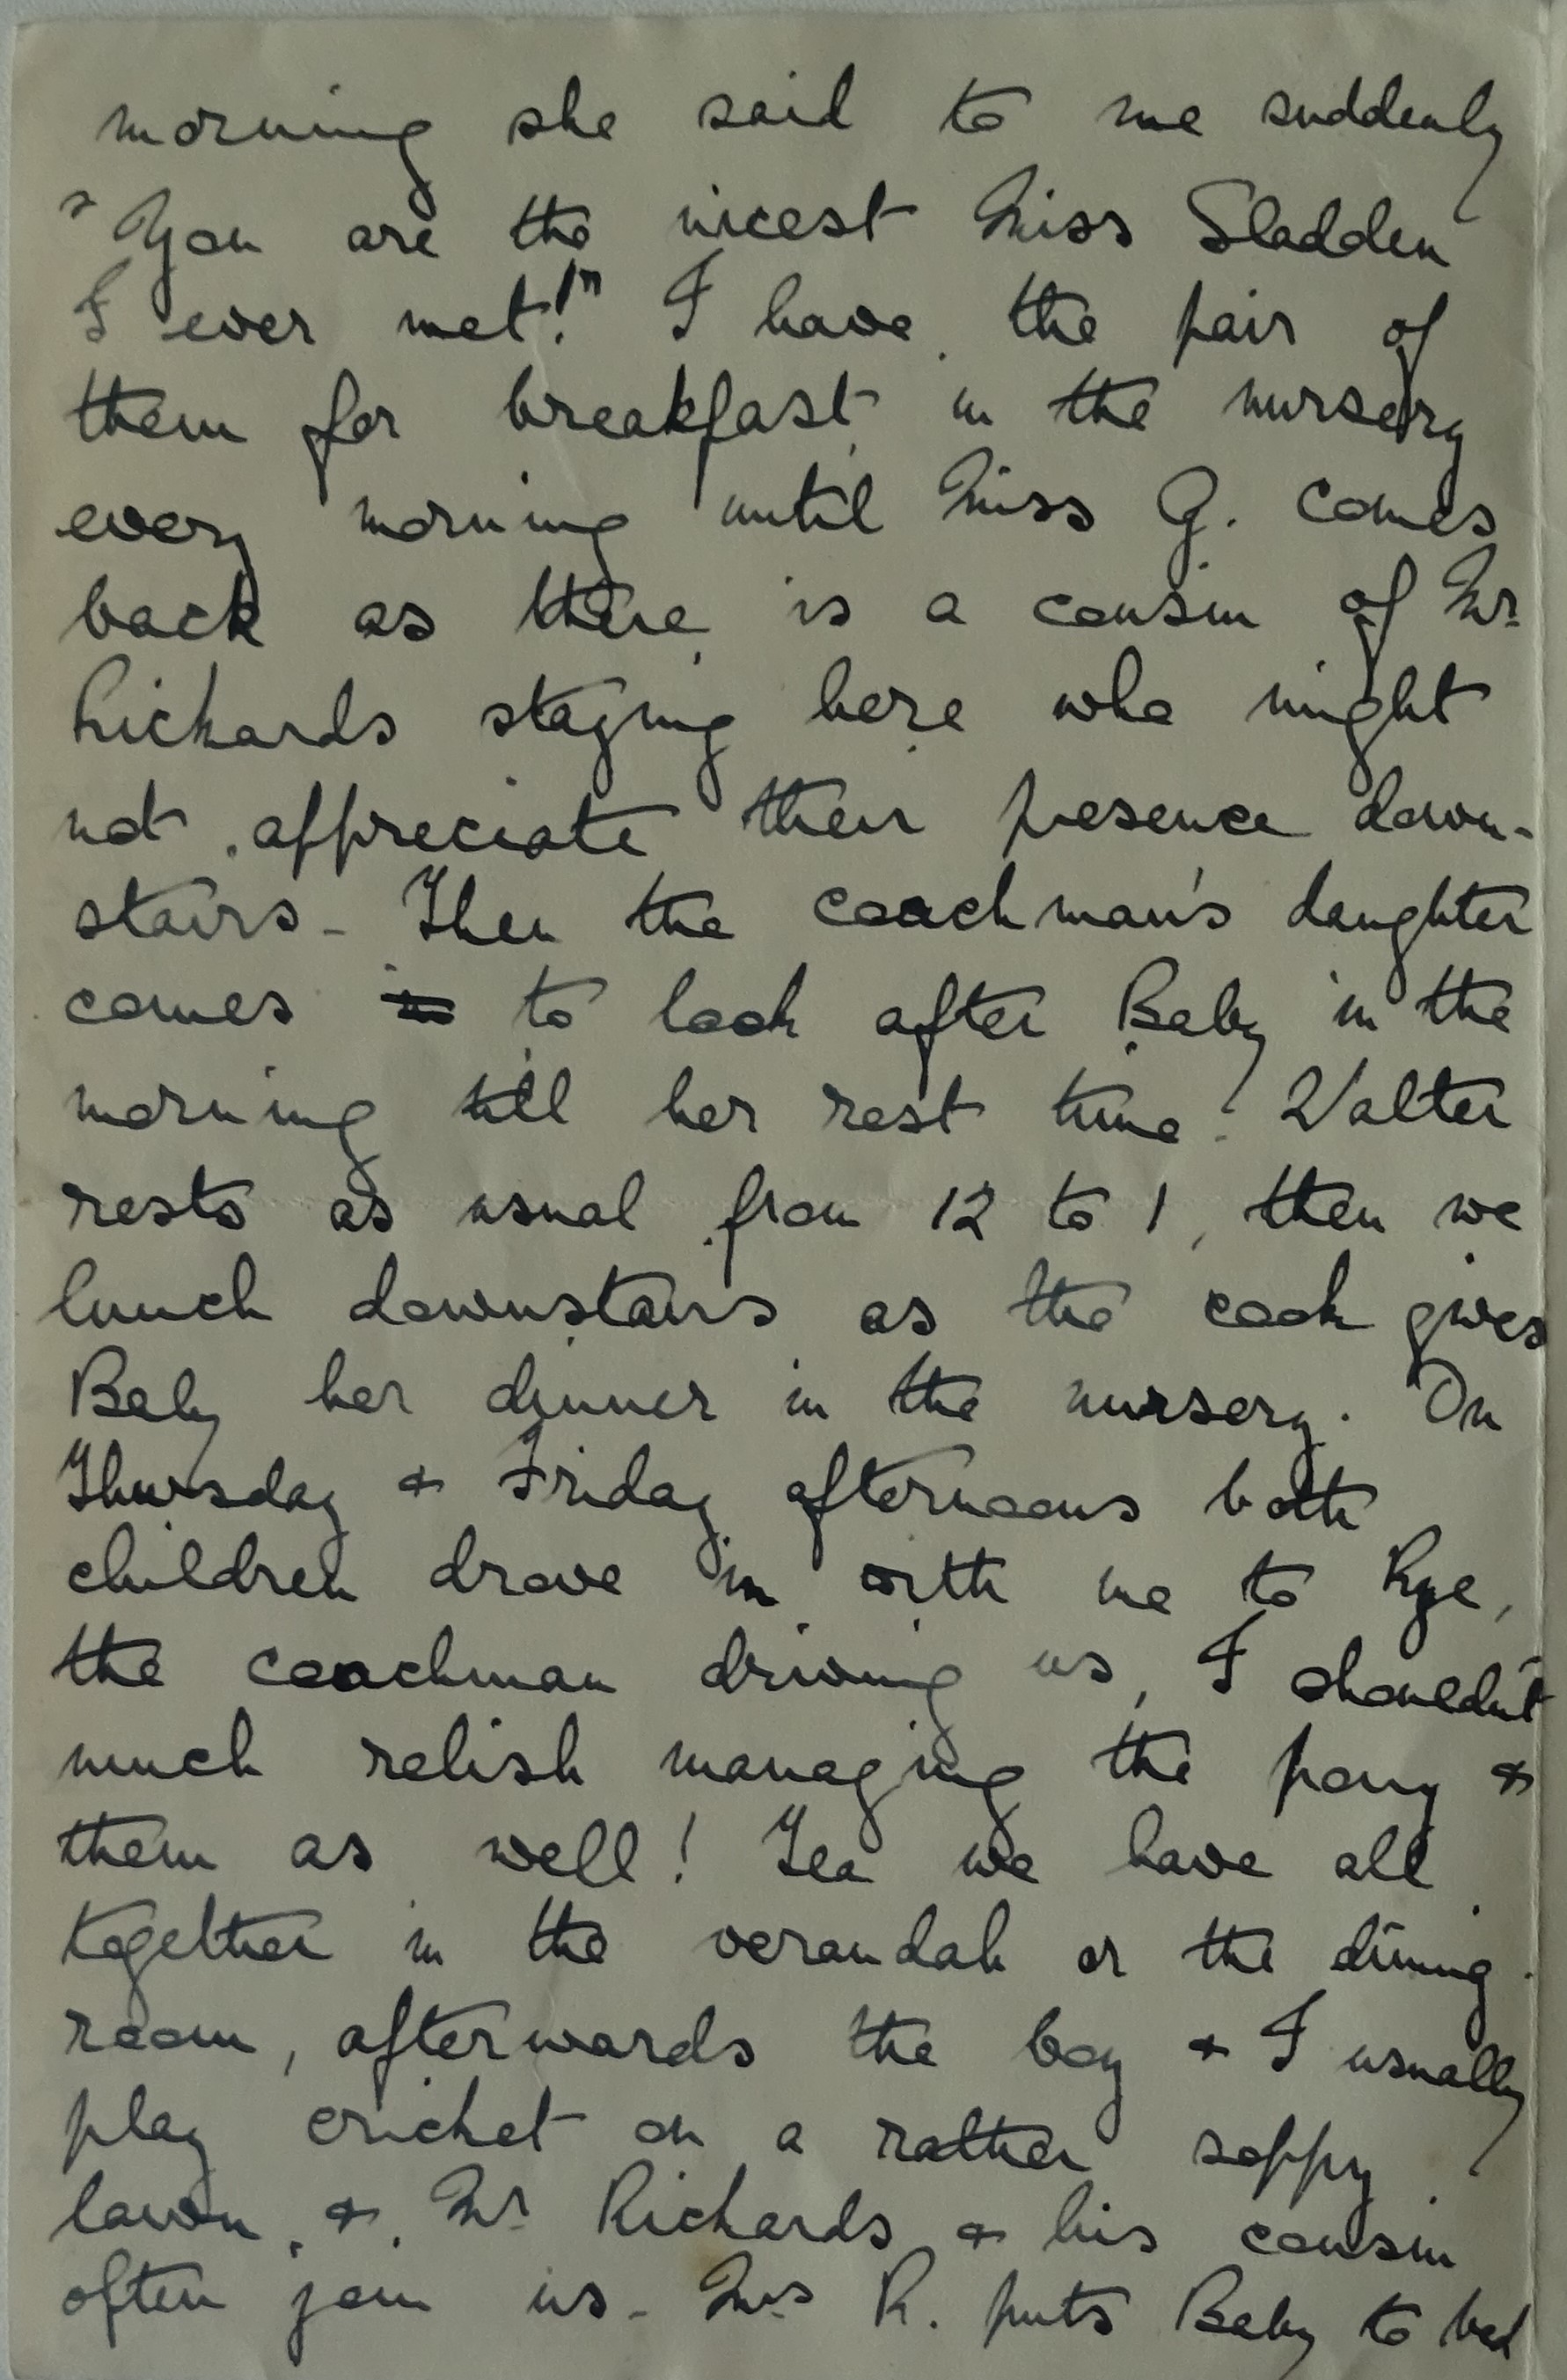 morning she said to me suddenly
"You are the nicest Miss Sladden
I ever met!" I have the pair of
them for breakfast in the nursery
every morning until Miss G. comes
back as there is a cousin of Mr
Richards staying here who might
not appreciate their presence down-
stairs - Then the coachman's daughter
comes to look after Baby in the
morning till her rest time. Walter
rests as usual from 12 to 1, then we
lunch downstairs as the cook gives
Baby her dinner in the nursery. On
Thursday & Friday afternoons both
children drove in with me to Rye,
the coachman driving us, I shouldn't
much relish managing the pony &
them as well! Tea we have all
together in the verandah or the dining
room, afterwards the boy & I usually
play cricket on a rather soppy
lawn, & Mr Richards & his cousin
often join us - Mrs R. puts Baby to bed